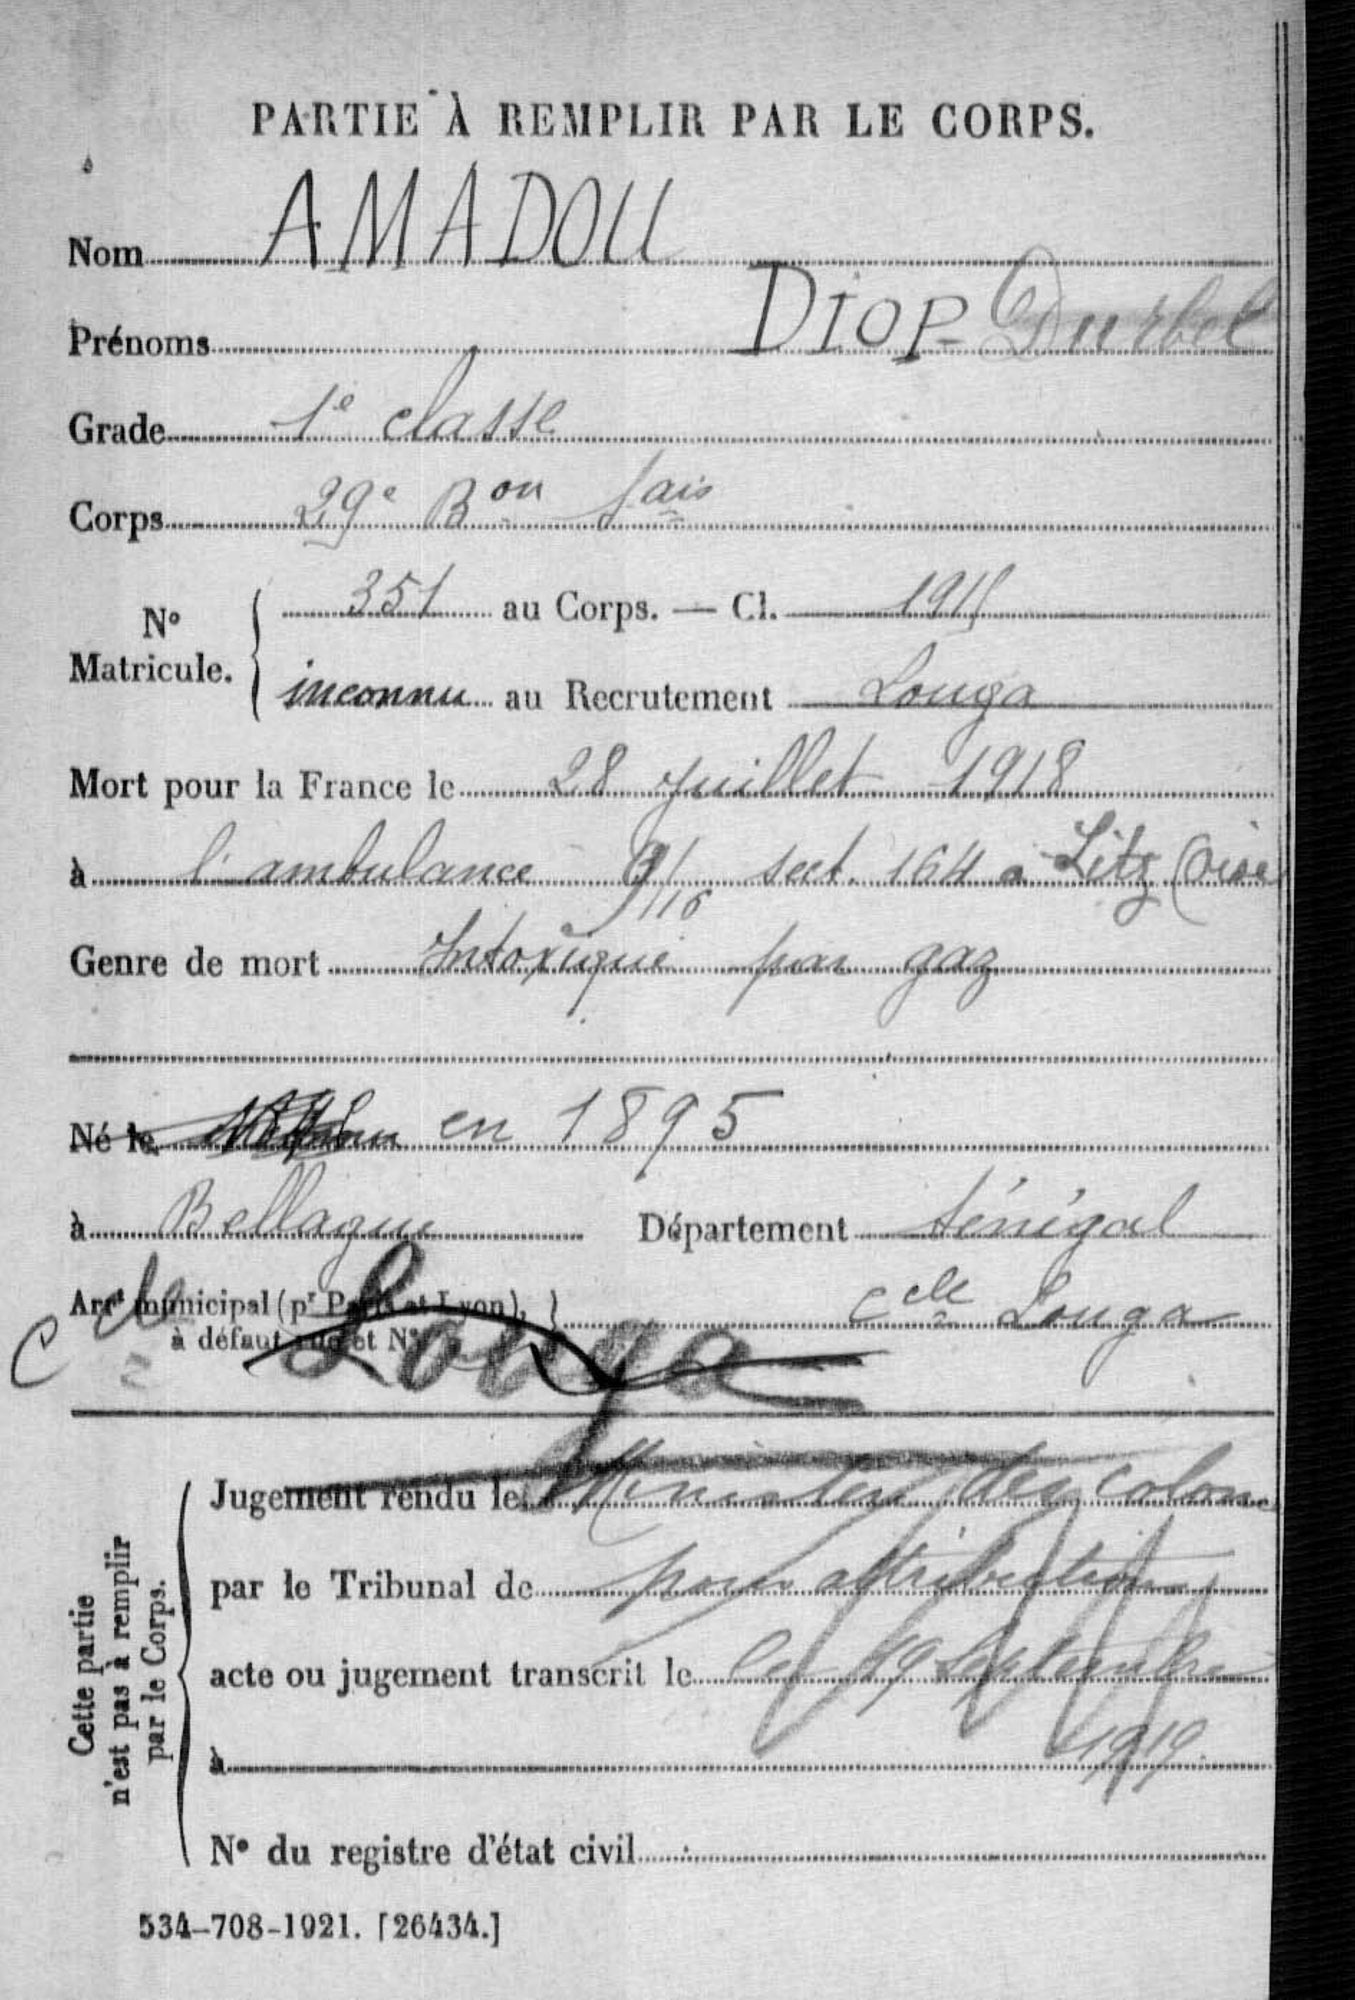 PARTIE À REMPLIR PAR LE CORPS.
Nom AMADOU
Prénoms DIOP Diurbel
Grade 1e classe
Corps 29e Bon Sais
No Matricule. 351 au Corps. — Cl. 1915
inconnu au Recrutement Louga
Mort pour la France le 28 juillet 1918
à l'ambulance 9/16 sect. 164 a Litz (Oise
Genre de mort Intoxiqué par gaz
Né le en 1895
à Bellague Département Sénégal
Arrt municipal (pr Paris et Lyon), à défaut rue et No. ccle Louga
ccle Louga
Jugement rendu le Ministère des colonies
par le Tribunal de pour attribution
acte ou jugement transcrit le le 19 Septembre
à 1919.
No du registre d'état civil
Cette partie
n'est pas à remplir
par le Corps.
534-708-1921. [26434.]